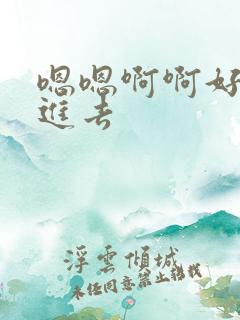 嗯嗯啊啊好
进去
浮云倾城
未经同意禁止转载